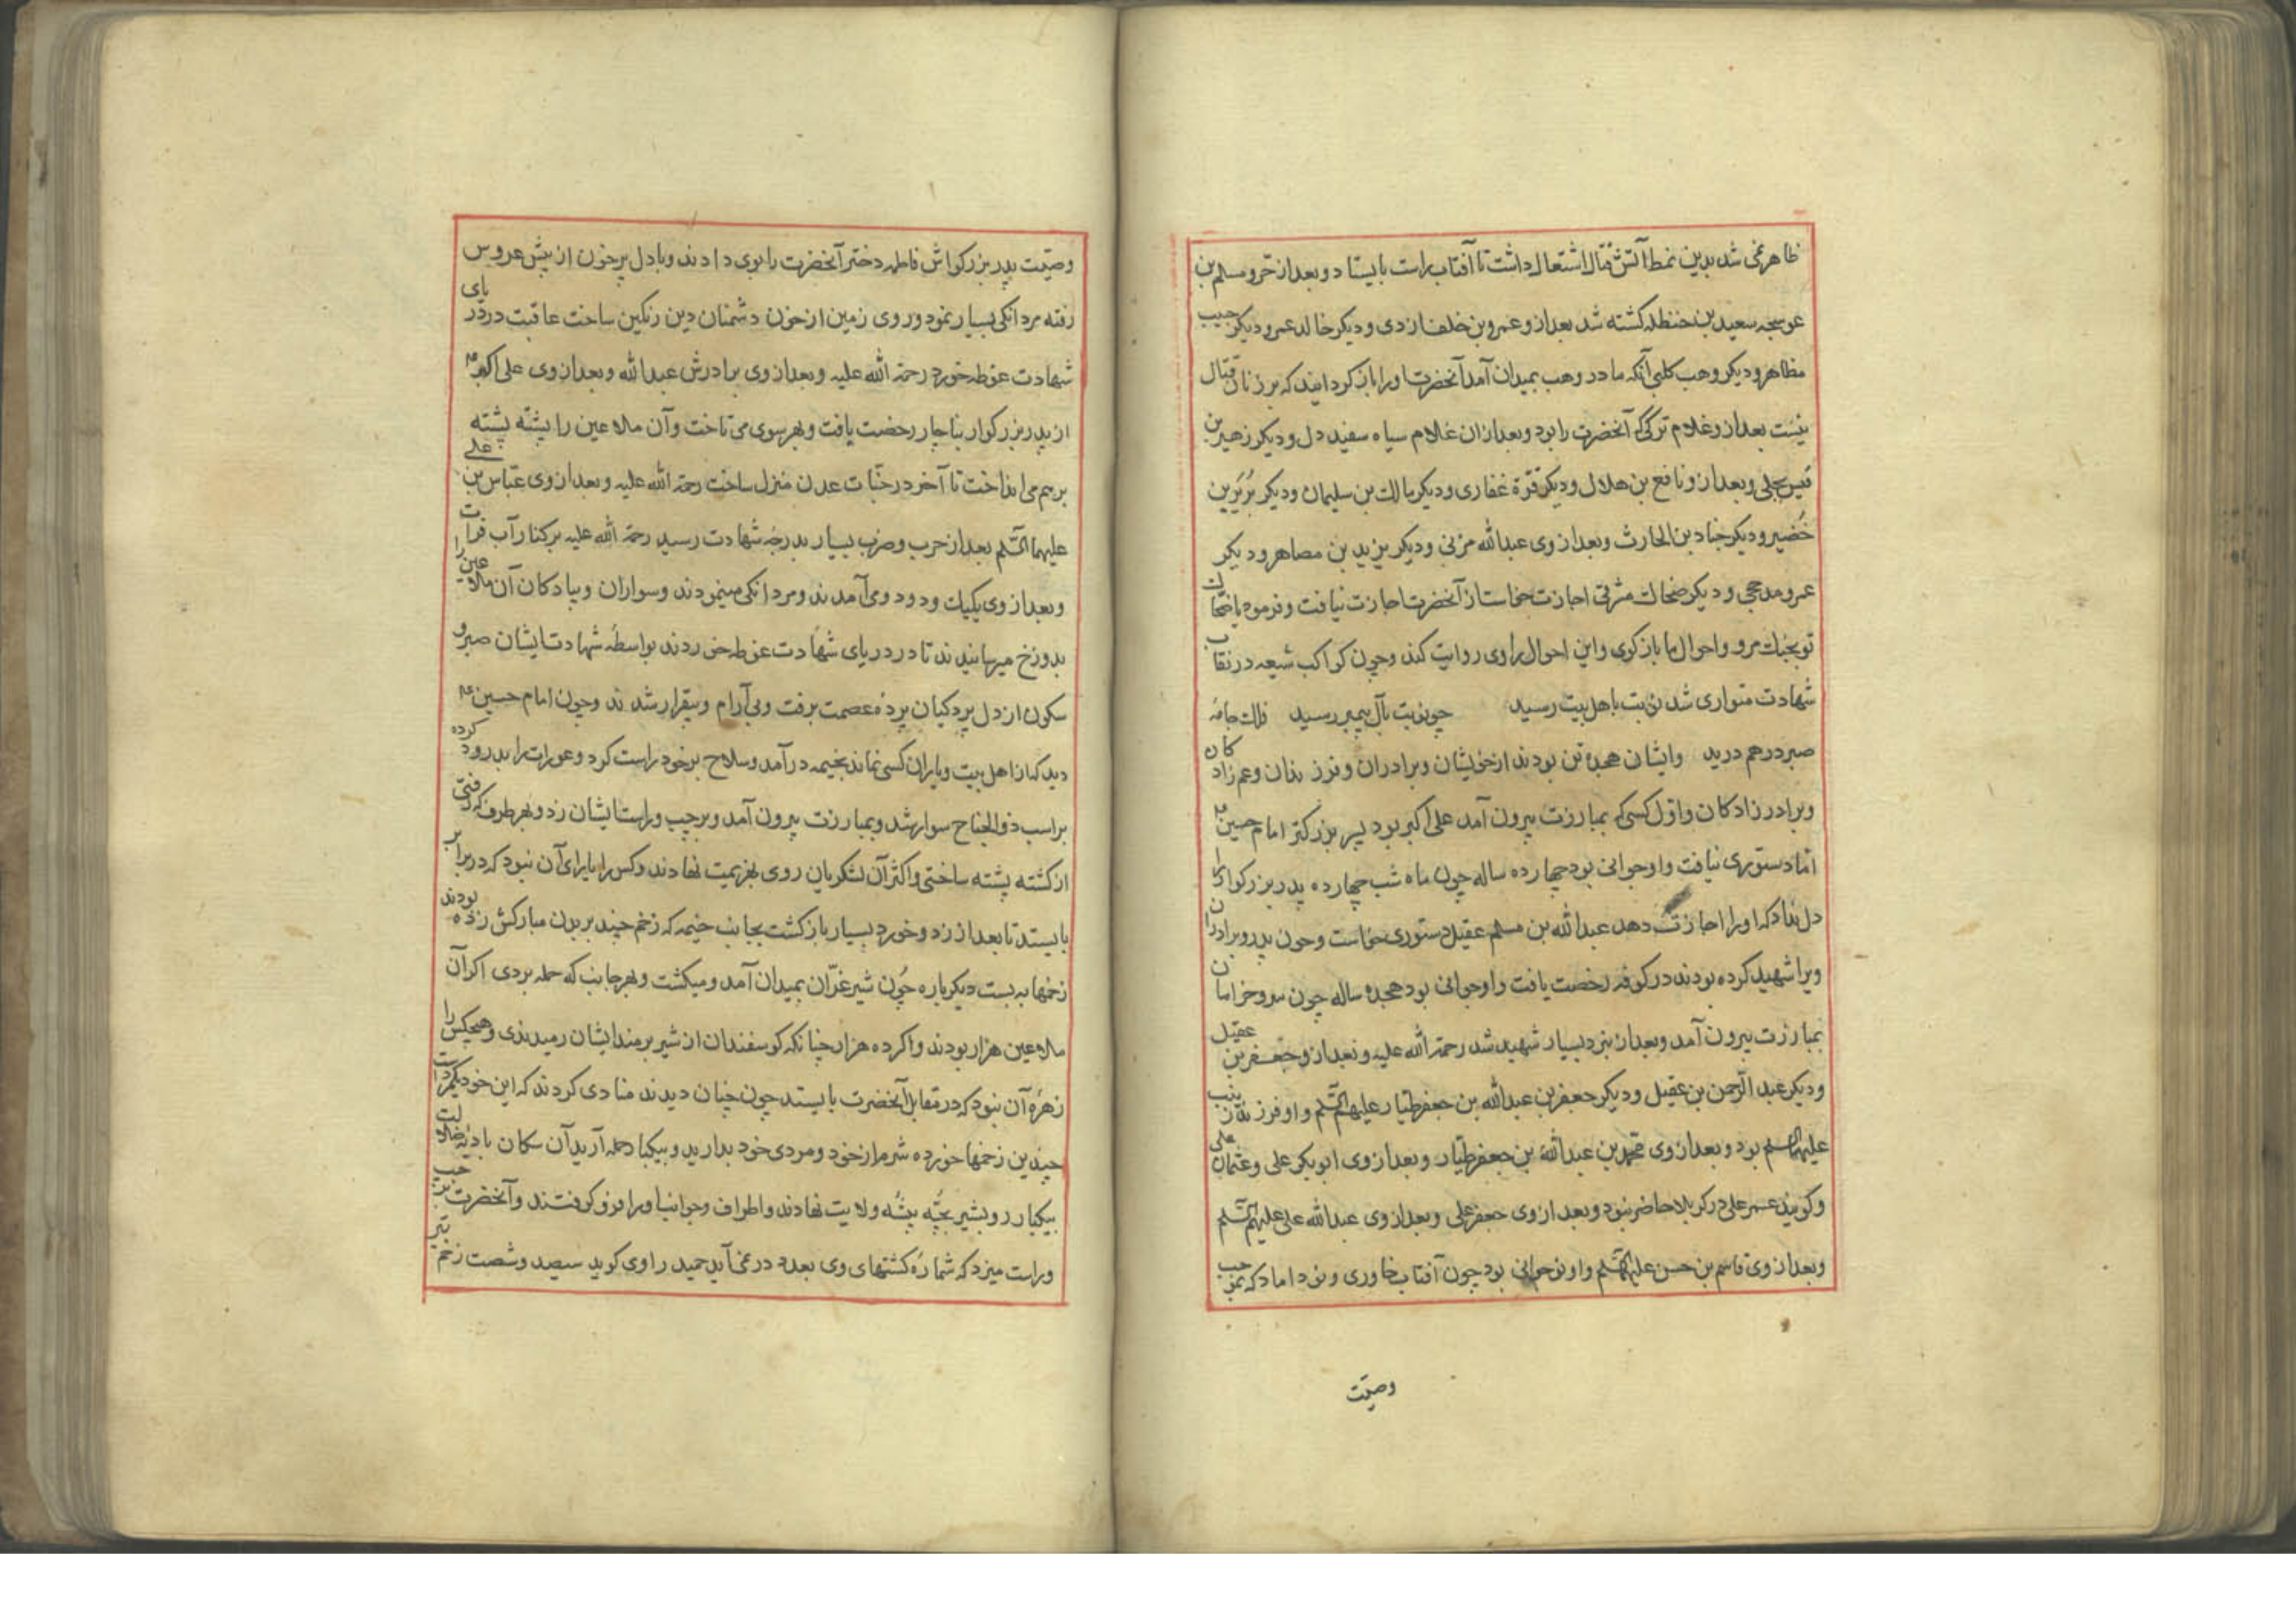 ظاهر نمی شد بدین نمط آتش قتال اشتعال داشت تا آفتاب راست بایستاد و بعد از حر و مسلم بن
عوسجه سعید بن حنظله کشته شد بعد ازو عمرو بن خلف ازدی و دیکر خالد عمر و دیکر حبیب
مظاهر و دیکر وهب کلبی آنکه مادر وهب بمیدان آمد آنحضرت اورا باز کردانید که بر زنان قتال
نیست بعد ازو غلام ترکی که آنحضرت را بود و بعد ازان غلام سیاه سفید دل و دیکر زهیر بن
قیس بجلی و بعد ازو نافع بن هلال و دیکر قرة غفاری و دیکر مالک بن سلیمان و دیکر بُرَیر بن
خُضیر و دیکر جناد بن الحارث و بعد از وی عبدالله مزنی و دیکر یزید بن مصاهر و دیکر
عمرو مدحجی و دیکر ضحاک مشرقی اجازت خواست از آنحضرت اجازت نیافت و فرمود یا ضحّاک
تو بجنک مرو و احوال ما باز کوی و این احوال راوی روایت کند و چون کواکب شیعه در نقاب
شهادت متواری شد نوبت باهل بیت رسید چو نوبت بآل پیمبر رسید فلک جامهٔ
صبر در هم درید و ایشان هجده تن بودند از خویشان و برادران و فرزندان و عم زادکان
و برادر زادکان و اوّل کسی که بمبارزت بیرون آمد علی اکبر بود پسر بزرکتر امام حسین ع
امّا دستوری نیافت و او جوانی بود چهارده ساله چون ماه شب چهارده پدر بزرکوار را
دل نداد که اورا اجازت دهد عبدالله بن مسلم عقیل دستوری خواست و چون پدر و برادران
ویرا شهید کرده بودند در کوفه رخصت یافت و او جوانی بود هجده ساله چون سرو خرامان
بمبارزت بیرون آمد و بعد از نبرد بسیار شهید شد رحمة الله علیه و بعد ازو جعفر بن عقیل
و دیکر عبد الرّحمن بن عقیل و دیکر جعفر بن عبدالله بن جعفر طیار علیهم السّلم و او فرزند زینب
علیها السلم بود و بعد از وی محمّد بن عبدالله بن جعفر طیّار و بعد از وی ابوبکر علی و عثمان علی
و کویند عمر علی در کربلا حاضر نبود و بعد از وی جعفر علی و بعد از وی عبدالله علی علیهم السّلم
و بعد از وی قاسم بن حسن علیهما السّلم و او نوجوانی بود چون آفتاب خاوری و نو داماد که بموجب
وصیّت
وصیّت پدر بزرکوارش فاطمه دختر آنحضرت را بوی دادند و با دل پر خون از پیش عروس
رفته مردانکی بسیار نمود و روی زمین از خون دشمنان دین رنکین ساخت عاقبت در دریای
شهادت غوطه خورد رحمة الله علیه و بعد از وی برادرش عبدالله و بعد از وی علی اکبر ع
از پدر بزرکوار بناچار رخصت یافت و بهر سوی می تاخت و آن ملاعین را پشتّه پشته
بر هم می انداخت تا آخر در جنّات عدن منزل ساخت رحمة الله علیه و بعد از وی عبّاس بن علی
علیهما السّلم بعد از حرب و ضرب بسیار بدرجهٔ شهادت رسید رحمة الله علیه بر کنار آب فرات
و بعد از وی یکیک و دو دو می آمدند و مردانکی مینمودند و سواران و پیادکان آن ملاعین را
بدوزخ میرسانیدند تا در دریای شهادت غوطه خوردند بواسطهٔ شهادت ایشان صبر و
سکون از دل پردکیان پردهٔ عصمت برفت و بی آرام و بیقرار شدند و چون امام حسین ع
دید که از اهل بیت و یاران کسی نماند بخیمه درآمد و سلاح بر خود راست کرد و عورات را بدرود کرده
بر اسب ذو الجناح سوار شد و بمبارزت بیرون آمد و بر چپ و راست ایشان زد و بهر طرف که رفتی
از کشته پشته ساختی و اکثر آن لشکریان روی بهزیمت نهادند و کس را یارای آن نبود که در برابر
بایستد تا بعد از زد و خورد بسیار باز کشت بجانب خیمه که زخم چند بر بدن مبارکش زده بودند
زخمها به بست دیکر باره چون شیر غرّان بمیدان آمد و میکشت و بهر جانب که حمله بردی اکر آن
ملاعین هزار بودند و اکر ده هزار چنانکه کوسفندان از شیر برمند ایشان رمیدندی و هیچکس را
زهرهٔ آن نبود که در مقابل آنحضرت بایستد چون چنان دیدند منادی کردند که این خود یکمرد است
چندین زخمها خورده شرم از خود و مردی خود بدارید و بیکبار حمله آرید آن سکان بادیهٔ ضلالت
بیکبار رو بشیر بچّه بیشهٔ ولایت نهادند و اطراف و جوانب اورا فرو کرفتند و آنحضرت بر چپ
و راست میزد که شمارهٔ کشتهای وی بعدد در نمی آید حمید راوی کوید سیصد و شصت زخم تیر